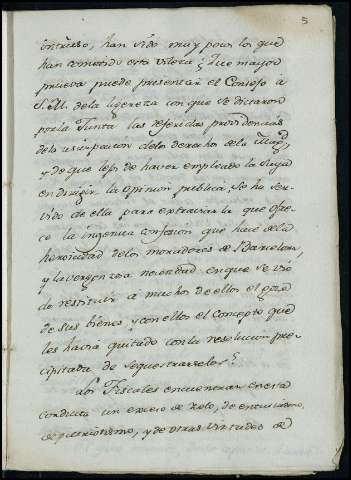 5
intruso, han sido muy pocos los que
han cometido esta vileza? Que mayor
prueva puede presentar el Consejo à
S.M. de la ligereza con que se dictaron
por la Junta las referidas providencias
de la usurpacion de los derechos de la
y de que lejos de haver empleado la suya
en dirigir la opinion publica, se ha ser-
vido de ella para extraviarla que ofre-
ce la ingenua confesion que hace de la
heroicidad de los moradores de Barcelona,
y la vergonzosa necesidad en que se vio
de restituir à muchos de ellos el goze
de sus bienes, y con ellos el concepto que
les havia quitado con la resolucion pre-
cipitada de sequestrarselos?
Los Fiscales encuentran en esta
conducta un exceso de zelo, de entusiasmo,
de patriotismo, y de otras virtudes de